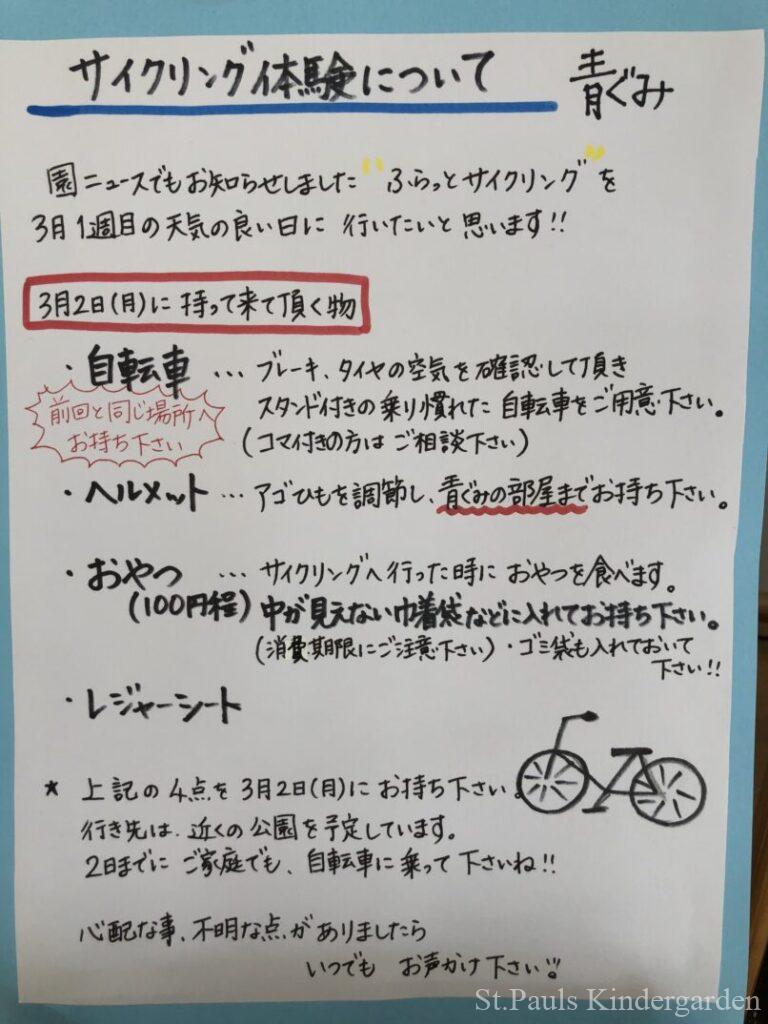 サイクリング体験について 青ぐみ
園ニュースでもお知らせしました"ふらっとサイクリング"を
3月1週目の天気の良い日に 行いたいと思います!!
3月2日(月)に持って来て頂く物
・自転車 … ブレーキ、タイヤの空気を確認して頂き
スタンド付きの乗り慣れた 自転車をご用意下さい。
(コマ付きの方は ご相談下さい)
前回と同じ場所へ
お持ち下さい
・ヘルメット … アゴひもを調節し、青ぐみの部屋までお持ち下さい。
・おやつ … サイクリングへ行った時に おやつを食べます。
(100円程) 中が見えない巾着袋などに入れてお持ち下さい。
(消費期限にご注意下さい)・ゴミ袋も入れておいて
下さい!!
・レジャーシート
★ 上記の4点を3月2日(月)に お持ち下さい。
行き先は、近くの公園を予定しています。
2日までに ご家庭でも、自転車に乗って下さいね!!
心配な事、不明な点がありましたら
いつでも お声かけ下さい!!
St.Pauls Kindergarden